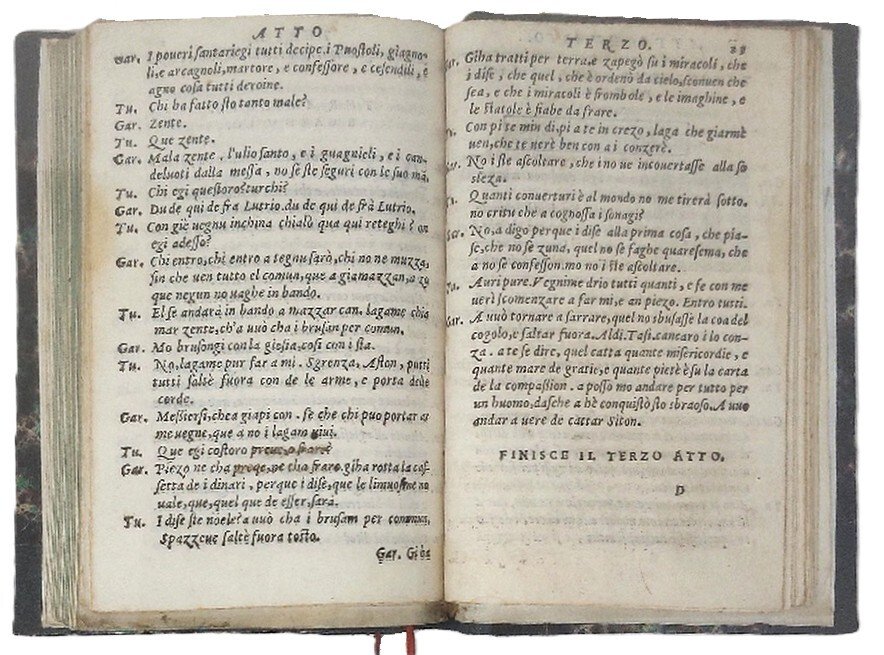 ATTO
Gar. I poueri santariegi tutti decipe. i Puostoli, giagno-
li, e arcagnoli, martore, e confessore, e cesendili, e
agno cosa tutti deroine.
Tu. Chi ha fatto sto tanto male?
Gar. Zente.
Tu. Que zente.
Gar. Mala zente. l'ulio santo, e i guagnieli, e i can-
deluoti dalla messa, no se ste seguri con le suo mã.
Tu. Chi egi questoro? turchi?
Gar. Du de qui de fra Lutrio. du de qui de frà Lutrio.
Tu. Con gie uegnu inchina chialò qua qui reteghi? on
egi adesso?
Gar. Chi entro, chi entro a segnu sarò, chi no ne muzza,
sin che uen tutto el comun, que a giamazzan, a zo
que negun no uaghe in bando.
Tu. El se andarà in bando a mazzar can. lagame chia
mar zente, ch'a uuò cha i brusan per comun.
Gar. Mo brusongi con la giesia, cosi con i sta.
Tu. No, lagame pur far a mi. Sgrenza, Aston, putti
tutti saltè fuora con de le arme, e porta delle
corde.
Gar. Messiersi, che a giapi con. se che chi puo portar ar
me uegne, que a no i lagam uiui.
Tu. Que egi costoro preue, o frare?
Gar. Piezo ne cha preue, ne cha frare. giha rotta la cas-
setta de i dinari, perque i disè, que le limuosine no
uale, que, quel que de esser, sarà.
Tu. I dise ste noele? a uuò cha i brusam per commun,
Spazzeue saltè fuora tosto.
Gar. Giba
TERZO. 25
Gar. Giha tratti per terra, e zapegò su i miracoli, che
i dise, che quel, che è ordenò da cielo, sconuen che
sea, e che i miracoli è frombole, e le imaghine, e
le statole è fiabe da frare.
Con pi te min di, pi a te in crezo, laga che giarmè
uen, che te nerè ben con a i conzerè.
No i ste ascoltare, che i no ue incouertasse alla so
steza.
Quanti conuerturi è al mondo no me tirerà sotto.
no critu che a cognossa i sonagi?
No, a digo perque i dise alla prima cosa, che pia-
se, che no se zuna, quel no se faghe quaresema, che
a no se confesson. mo no i ste ascoltare.
Auri pure. Vegnime drio tutti quanti, e fe con me
uerì scomenzare a far mi, e an piezo. Entro tutti.
Gar. A uuò tornare a sarrare, quel no sbusasse la coa del
cogolo, e saltar fuora. Aldi. Tasi. cancaro i lo con-
za. a te se dire, quel catta quante misericordie, e
quante mare de gratie, e quante pietè è su la carta
de la compassion. a posso mo andare per tutto per
un buomo, dasche a hè conquistò sto sbraoso. A uuo
andar a uere de cattar Siton.
FINISCE IL TERZO ATTO.
D